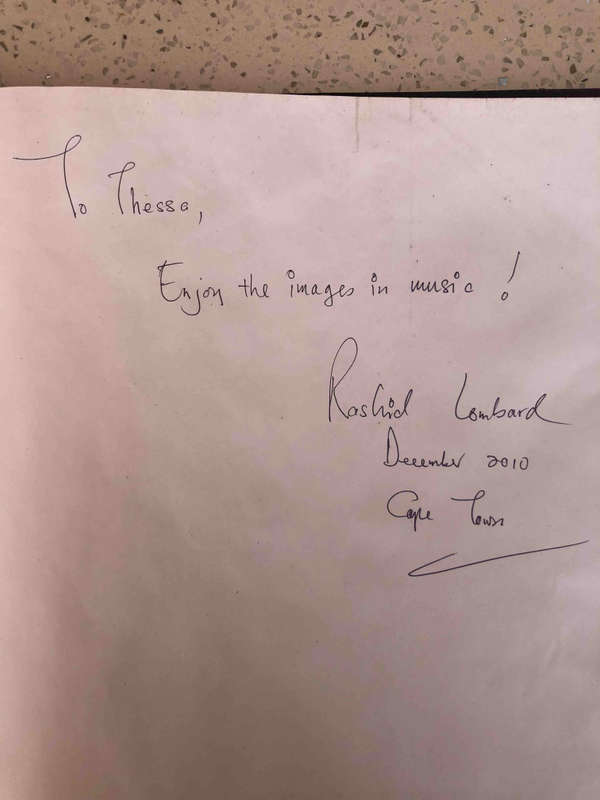 To Thessa,
Enjoy the images in music!
Rashid Lombard
December 2010
Cape Town